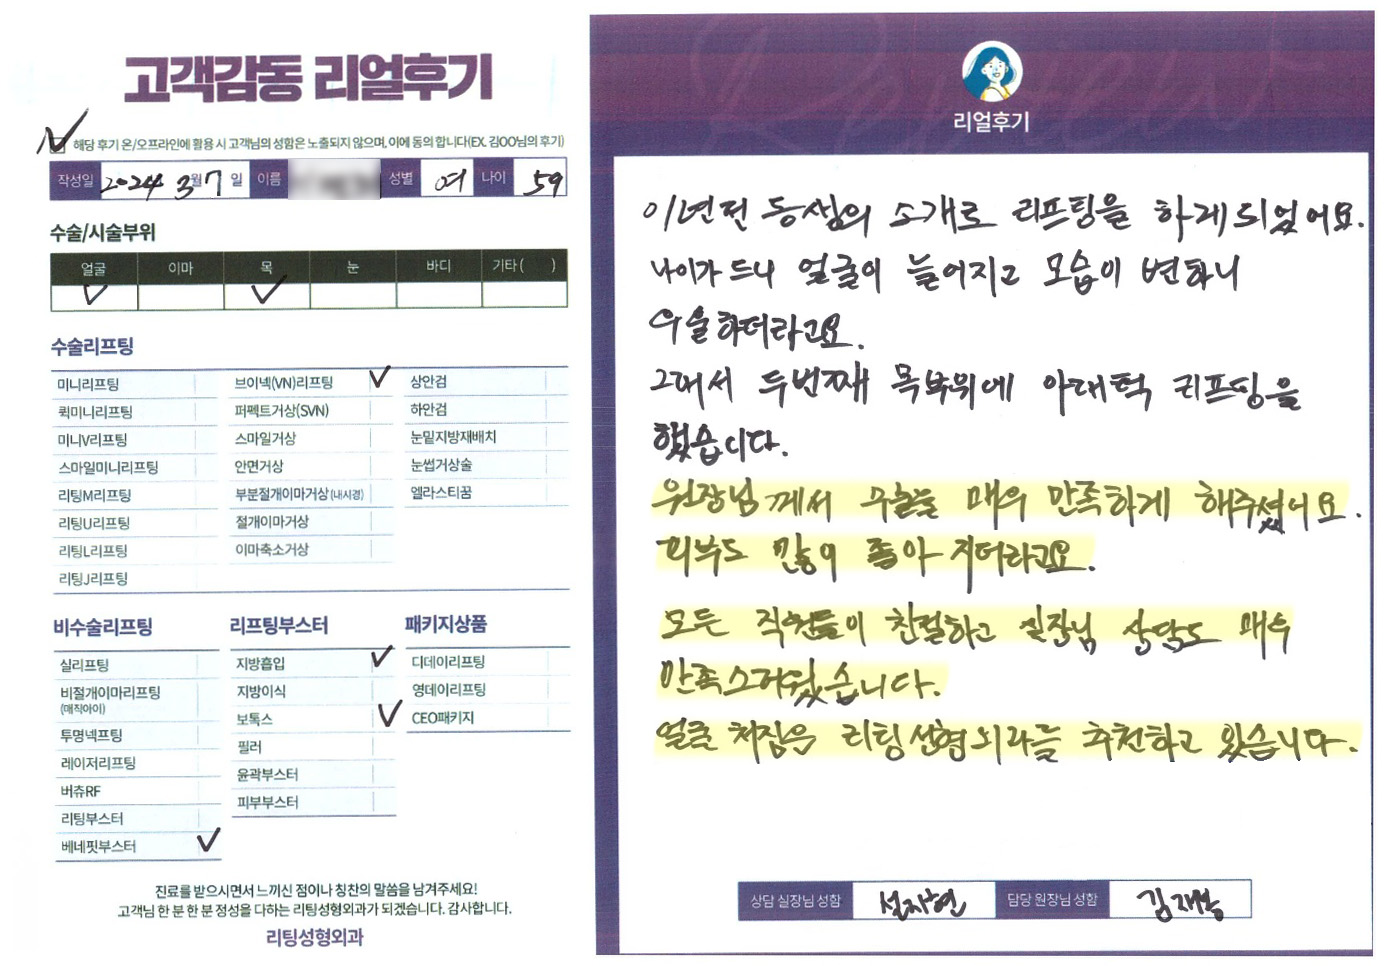 고객감동 리얼후기
해당 후기 온/오프라인에 활용 시 고객님의 성함은 노출되지 않으며, 이에 동의 합니다(EX. 김OO님의 후기)
작성일 2024 3월 7일 이름 성별 여 나이 59
수술/시술부위
얼굴 이마 목 눈 바디 기타 ( )
수술리프팅
미니리프팅 브이넥(VN)리프팅 상안검
퀵미니리프팅 퍼펙트거상(SVN) 하안검
미니V리프팅 스마일거상 눈밑지방재배치
스마일미니리프팅 안면거상 눈썹거상술
리팅M리프팅 부분절개이마거상(내시경) 엘라스티꿈
리팅U리프팅 절개이마거상
리팅L리프팅 이마축소거상
리팅J리프팅
비수술리프팅 리프팅부스터 패키지상품
실리프팅 지방흡입 디데이리프팅
비절개이마리프팅 지방이식 영데이리프팅
(매직아이)
투명넥프팅 보톡스 CEO패키지
레이저리프팅 필러
버츄RF 윤곽부스터
리팅부스터 피부부스터
베네핏부스터
진료를 받으시면서 느끼신 점이나 칭찬의 말씀을 남겨주세요!
고객님 한 분 한 분 정성을 다하는 리팅성형외과가 되겠습니다. 감사합니다.
리팅성형외과
리얼후기
이년전 동생의 소개로 리프팅을 하게되었어요.
나이가 드니 얼굴이 늘어지고 모습이 변하니
우울하더라고요.
그래서 두번째 목부위에 아래턱 리프팅을
했습니다.
원장님께서 수술을 매우 만족하게 해주셨어요.
피부도 많이 좋아 지더라고요.
모든 직원들이 친절하고 실장님 상담도 매우
만족스러웠습니다.
얼굴 처짐은 리팅성형외과를 추천하고 있습니다.
상담 실장님 성함 담당 원장님 성함